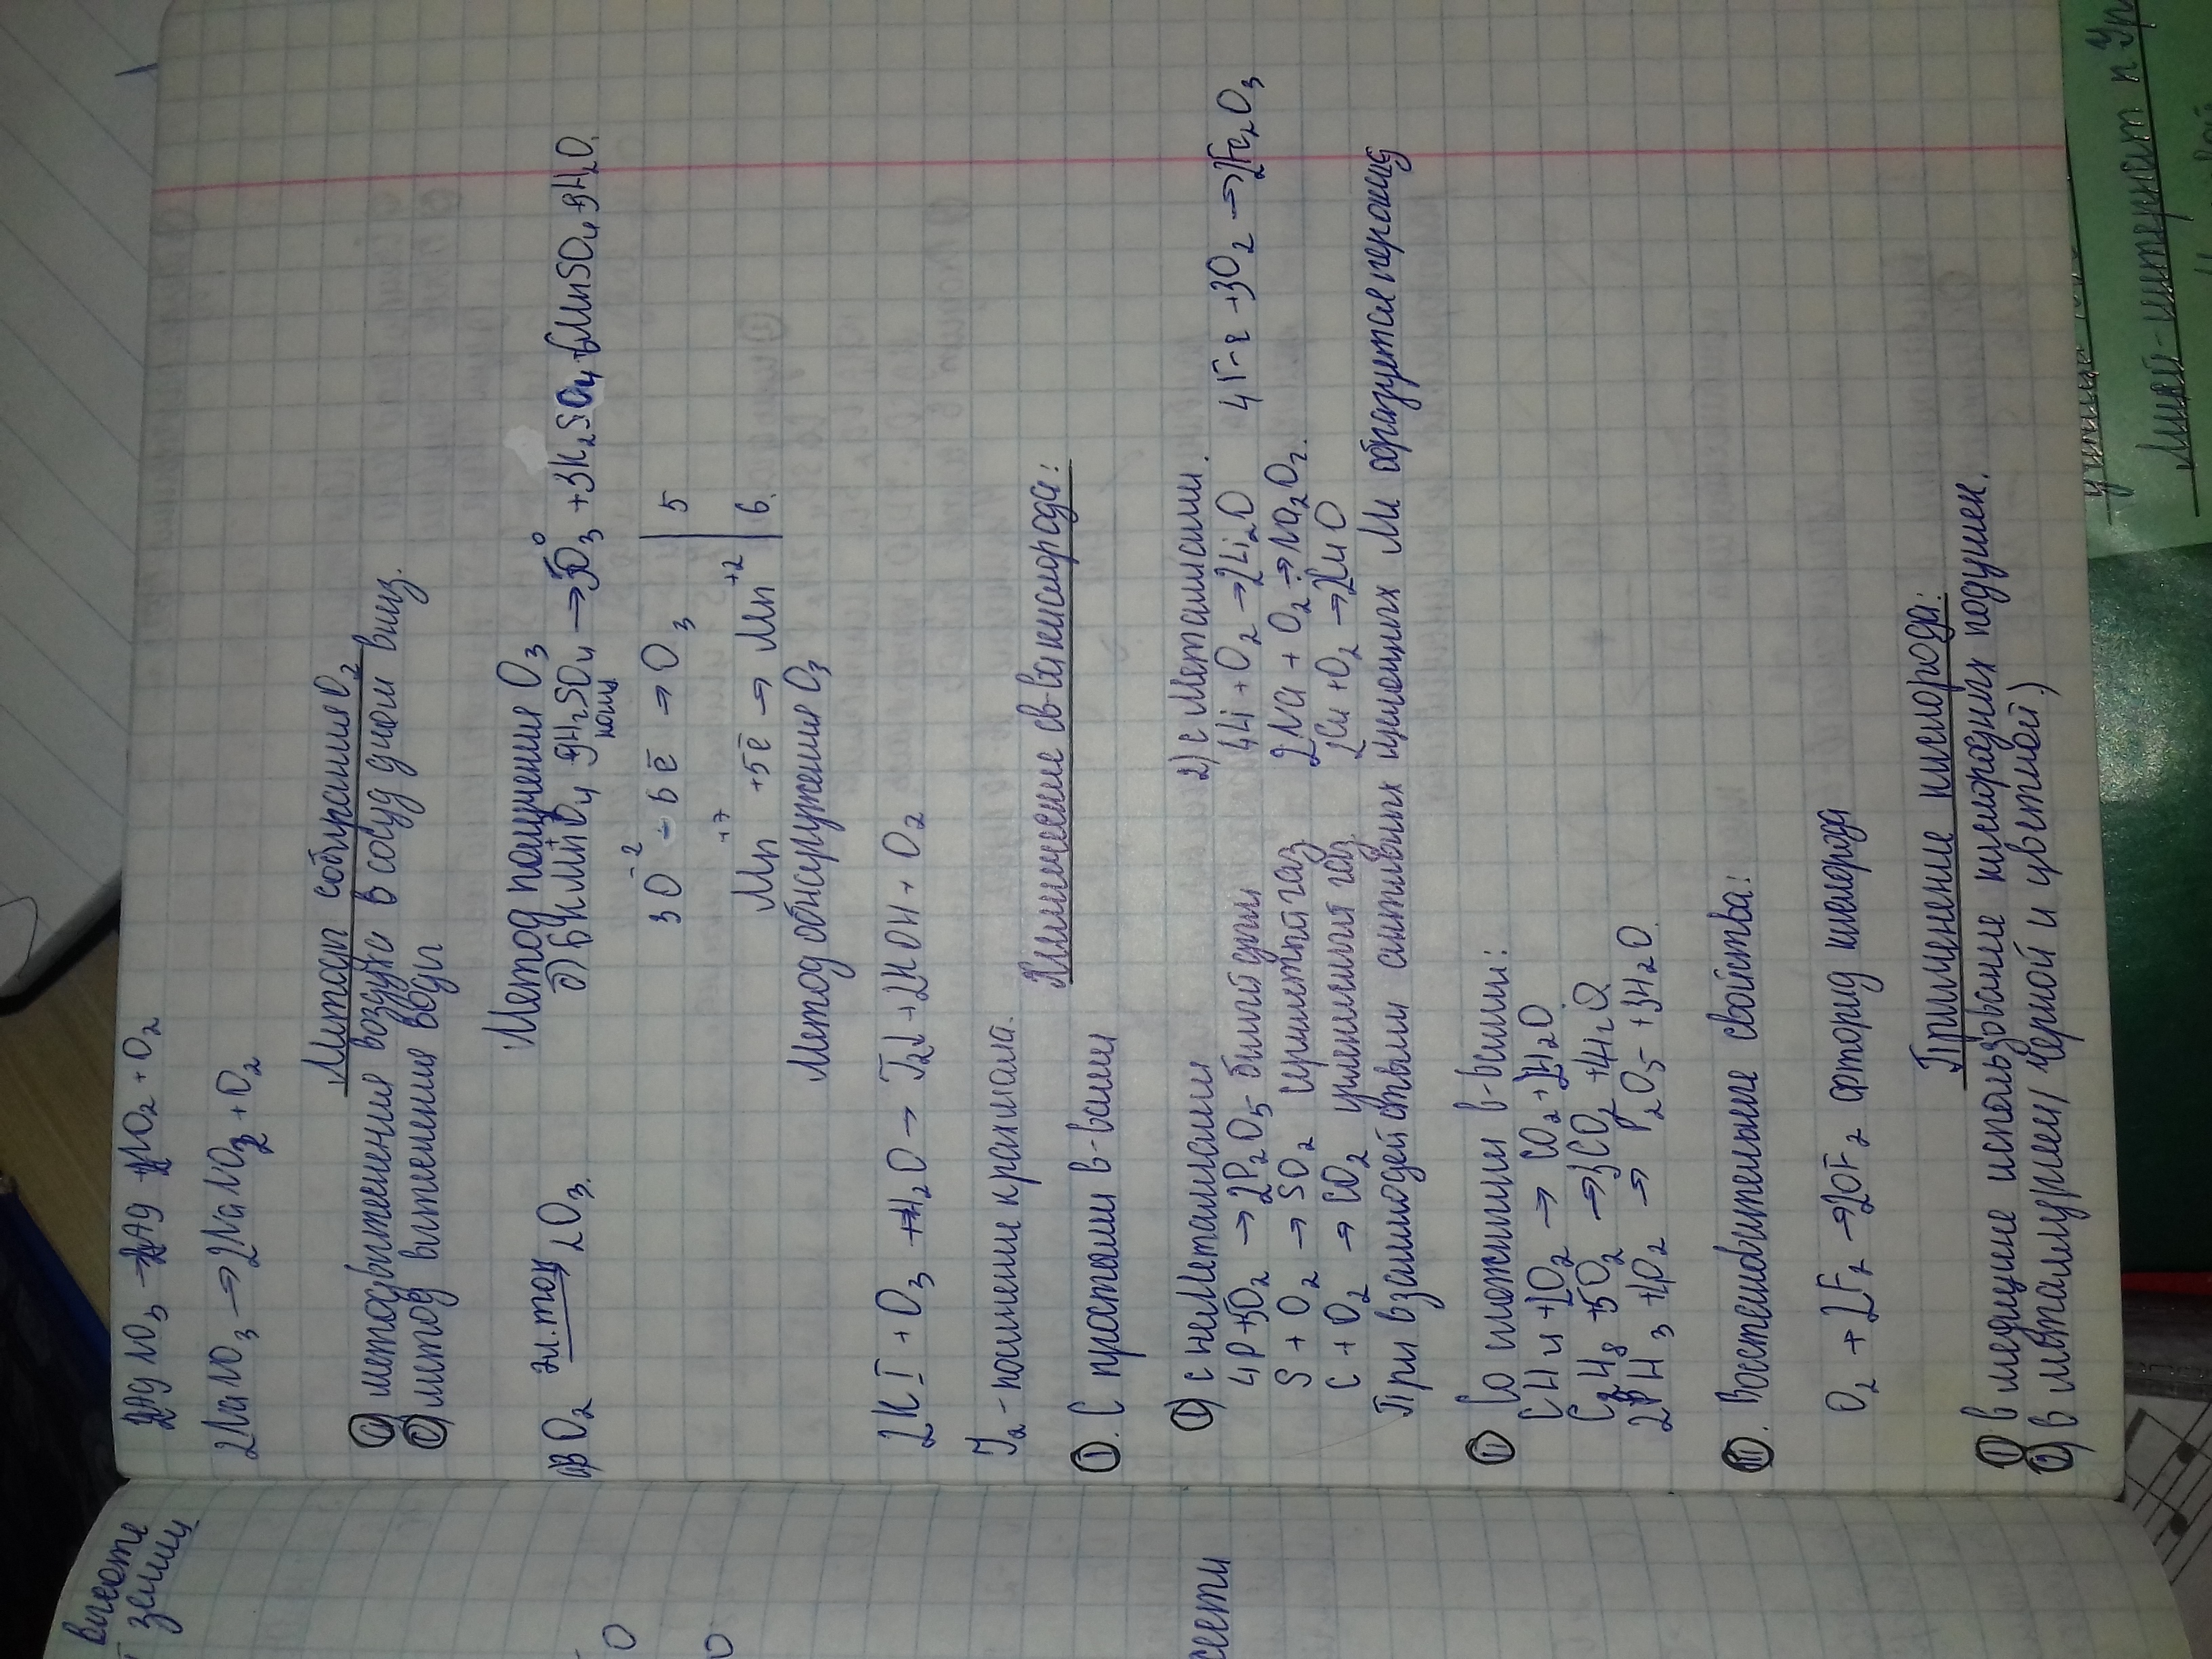 2AgNO3 → 2Ag + 2NO2 + O2
2NaNO3 → 2NaNO2 + O2
Методы собирания O2
1) метод вытеснения воздуха в сосуд дном вниз.
2) метод вытеснения воды
Метод получения O3
а) 3O2 эл.ток 2O3.
б) 6KMnO4 9H2SO4 → 5O3 + 3K2SO4 + 6MnSO4 + 9H2O.
конц
3O-2 - 6ē → O3 | 5
Mn+7 +5ē → Mn+2 | 6.
Метод обнаружения O3
2KI + O3 + H2O → I2↓ + 2KOH + O2
I2 - посинение крахмала.
Химические св-ва кислорода:
I. С простыми в-вами
1) с неМеталлами
4P + 5O2 → 2P2O5 белый дым
S + O2 → SO2 сернистый газ
C + O2 → CO2 углекислый газ
2) с Металлами.
4Li + O2 → 2Li2O
4Fe + 3O2 → 2Fe2O3
2Na + O2 → Na2O2.
2Cu + O2 → 2CuO
При взаимодействыи активных щелочных Ме образуется пероксид
II Со сложными в-вами:
CH4 + 2O2 → CO2 + 2H2O
C3H8 + 5O2 → 3CO2 + 4H2O
2PH3 + 4O2 → P2O5 + 3H2O.
III. Восстановительные свойства:
O2 + 2F2 → 2OF2 фторид кислорода
Применение кислорода:
1) В медицине использование кислородных подушек.
2) В металлургии( черной и цветной.)
высоте
земли
O
O
лицей-интернат п Ур